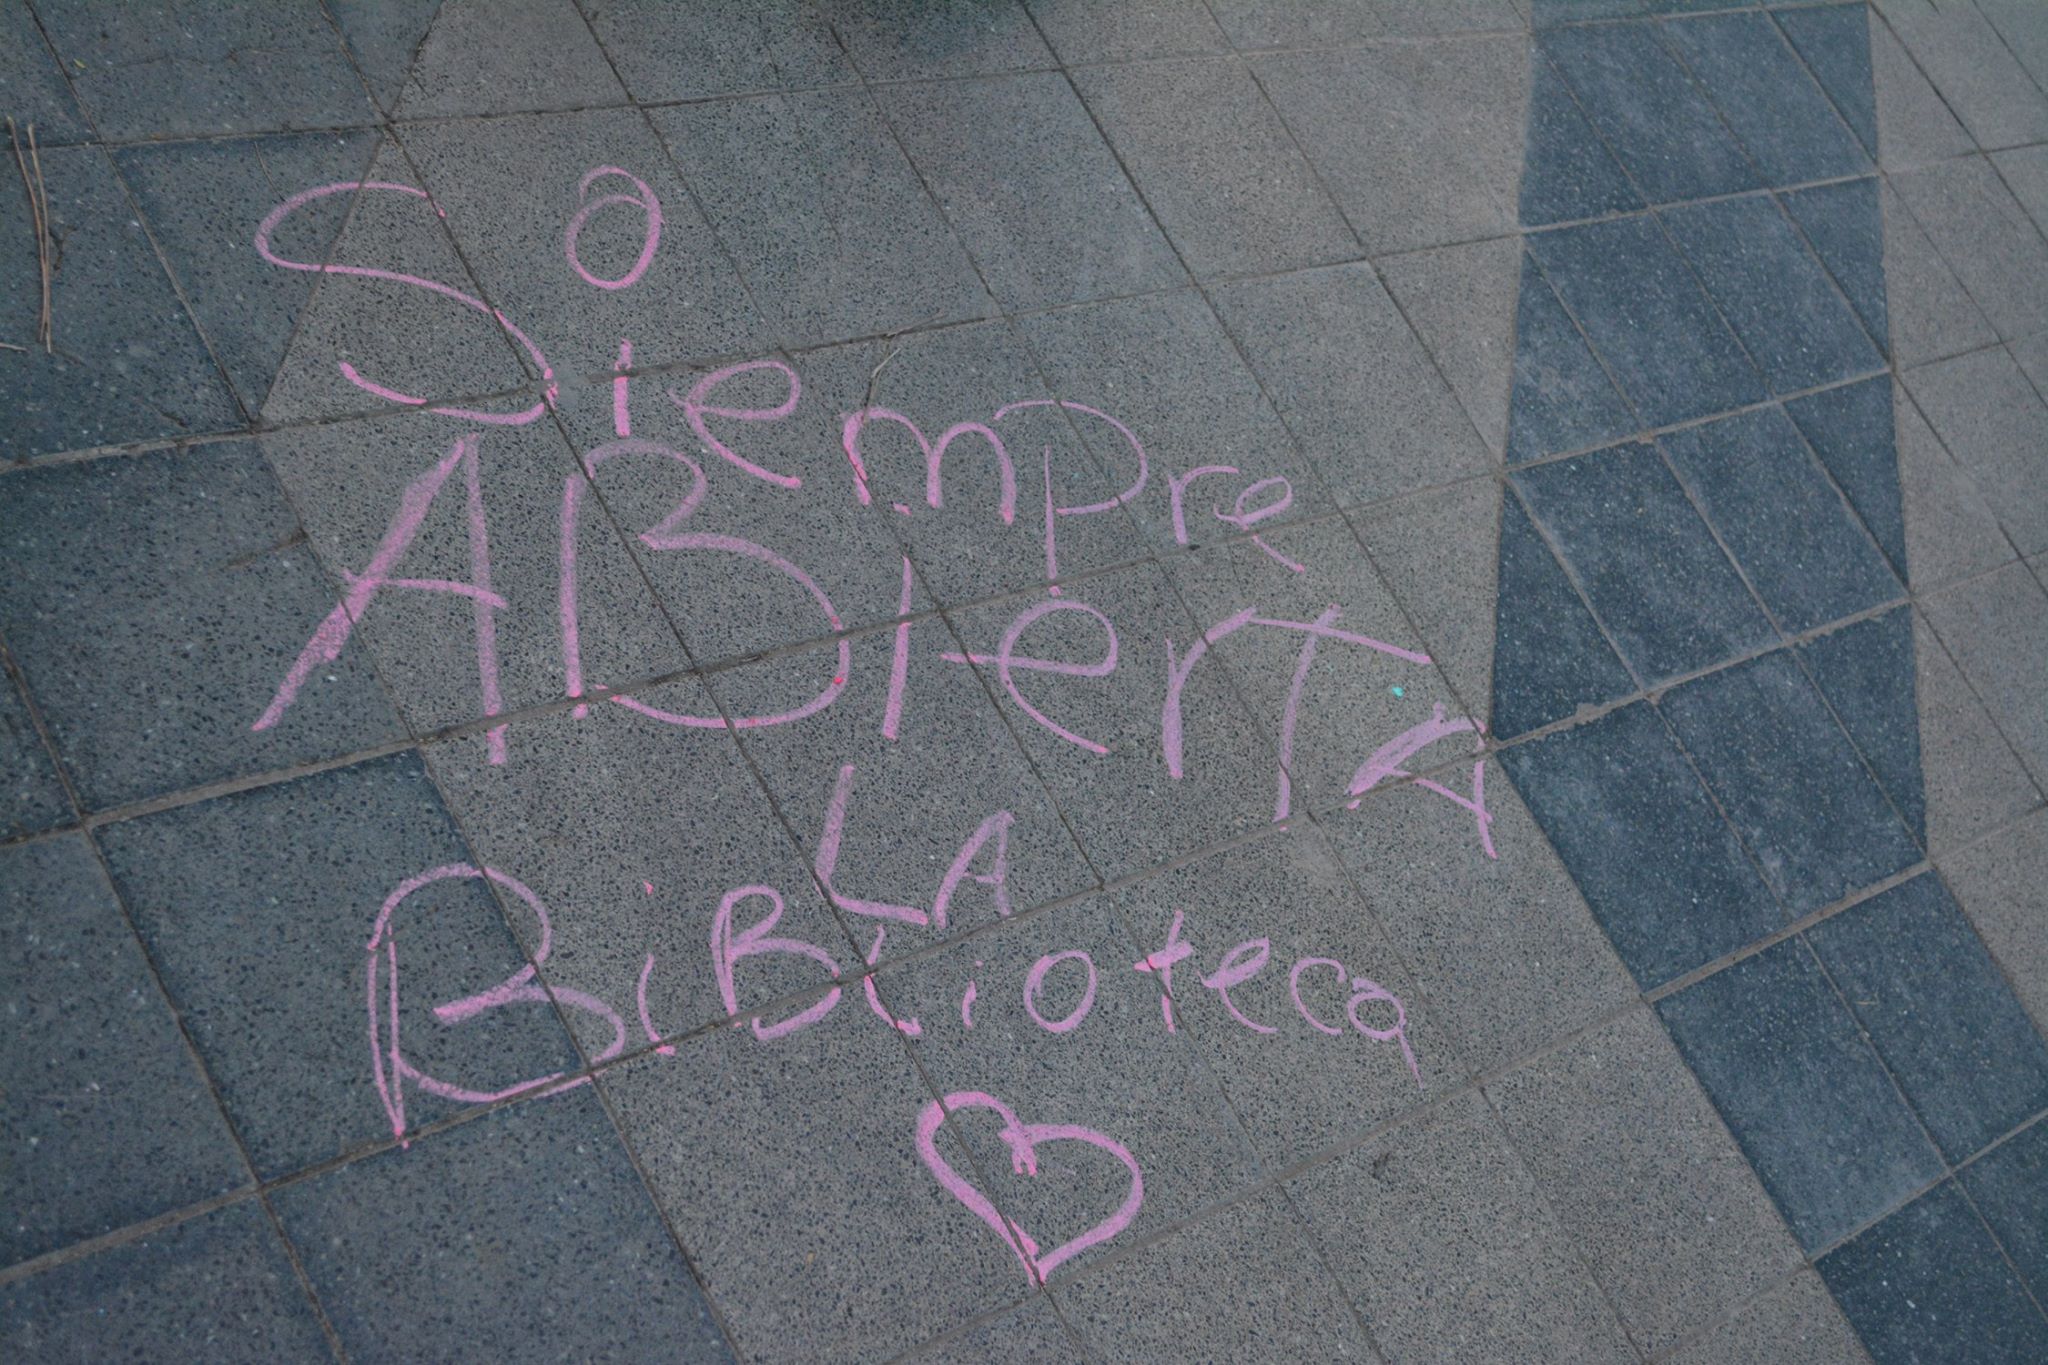 Siempre
ABIerTA
LA
BiBLioteca